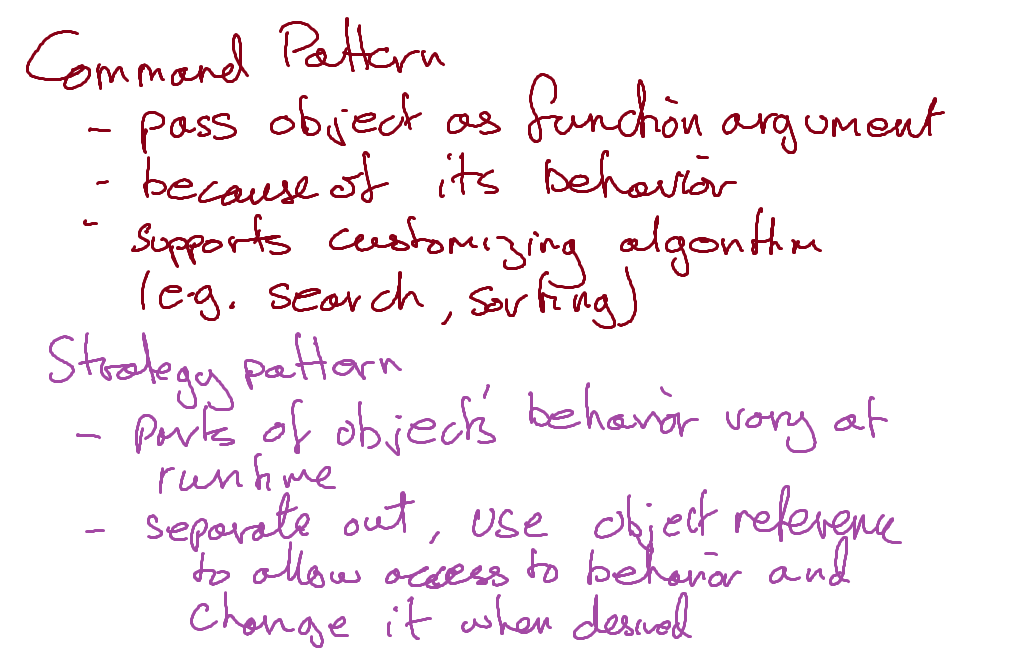 Command Pattern
- pass object as function argument
- because of its behavior
- supports customizing algorithm
(e.g. search, sorting)
Strategy pattern
- parts of objects' behavior vary at
runtime
- separate out, use object reference
to allow access to behavior and
change it when desired